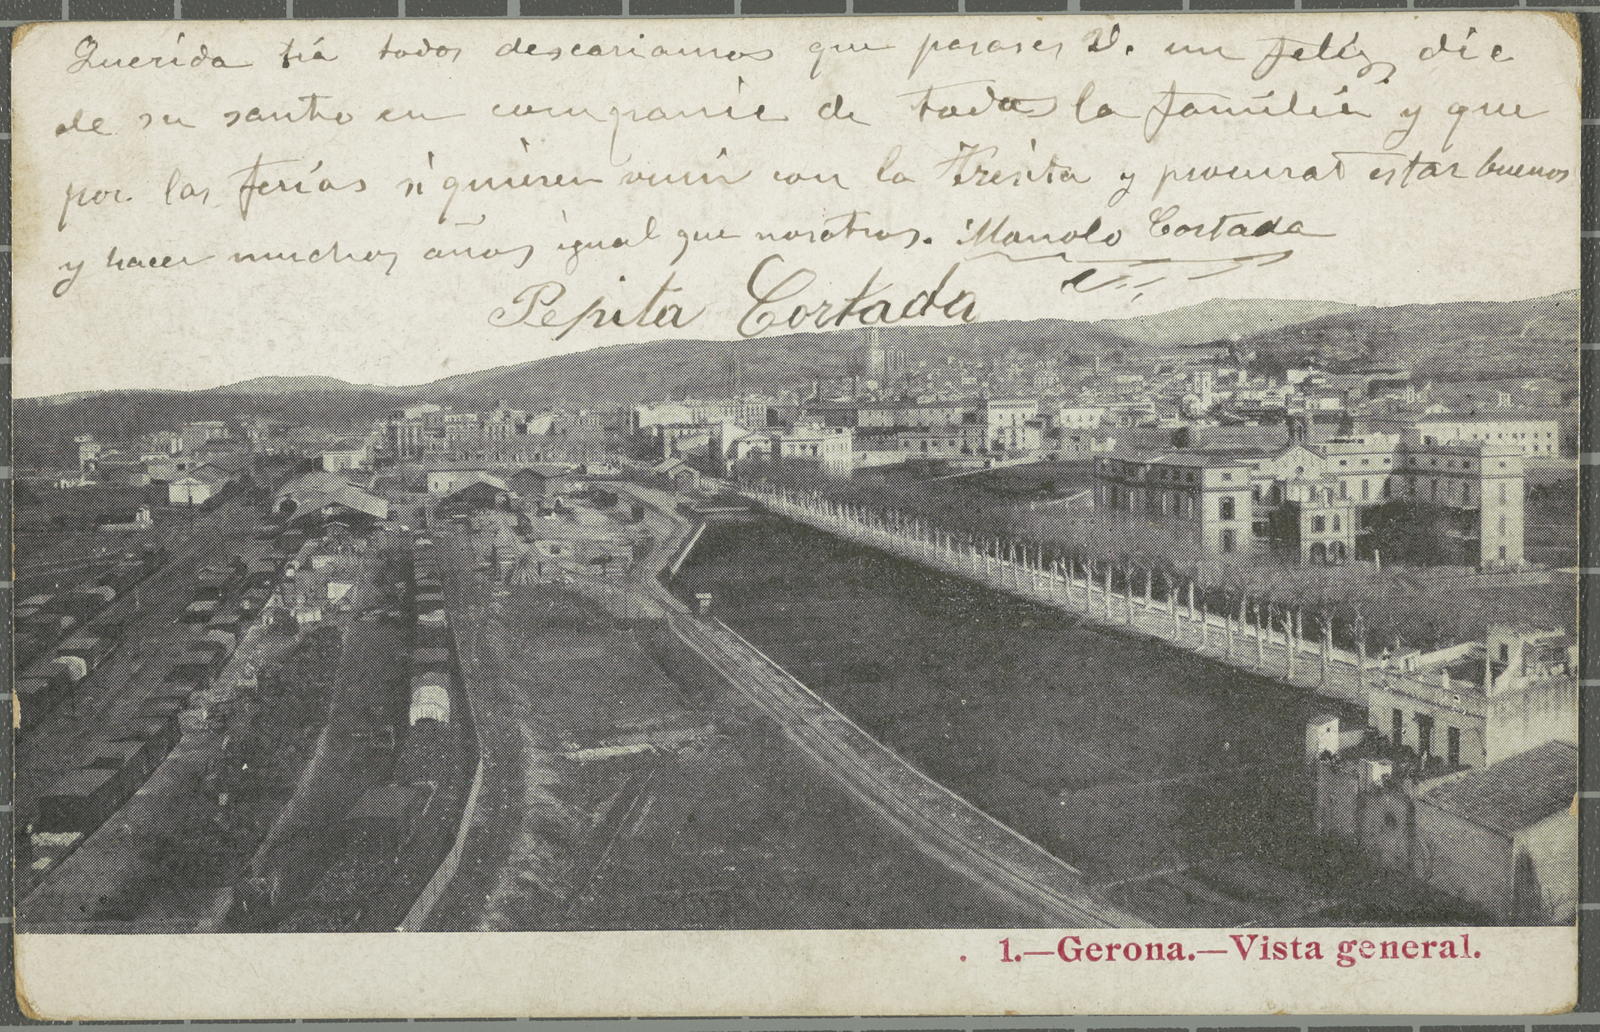 Querida tia todos descariamos que pasases V. un feliz die
de su santo en companie de toda la familie y que
por las ferias si quieren venir con la Tresita y procurad estar buenos
y hacer muchos años igual que nosotros. Manolo Cortada
Pepita Cortada
1.—Gerona.—Vista general.